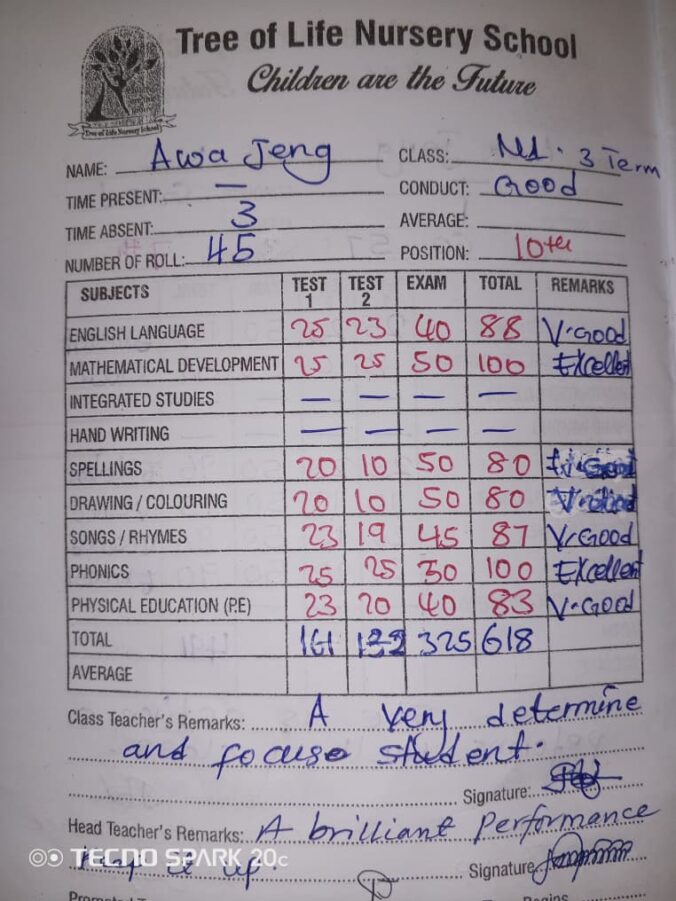 Tree of Life Nursery School
Children are the Future
Tree of Life Nursery School
NAME: Awa Jeng CLASS: N1. 3 Term
TIME PRESENT: — CONDUCT: Good
TIME ABSENT: 3 AVERAGE:
NUMBER OF ROLL: 45 POSITION: 10th
SUBJECTS TEST 1 TEST 2 EXAM TOTAL REMARKS
ENGLISH LANGUAGE 25 23 40 88 V.Good
MATHEMATICAL DEVELOPMENT 25 25 50 100 Excellent
INTEGRATED STUDIES — — — —
HAND WRITING — — — —
SPELLINGS 20 10 50 80 Good
DRAWING / COLOURING 20 10 50 80 V.Good
SONGS / RHYMES 23 19 45 87 V.Good
PHONICS 25 25 50 100 Excellent
PHYSICAL EDUCATION (P.E) 23 20 40 83 V.Good
TOTAL 161 132 325 618
AVERAGE
Class Teacher's Remarks: A very determine
and focuse student.
Signature:
Head Teacher's Remarks: A brilliant performance
keep it up. Signature
TECNO SPARK 20C